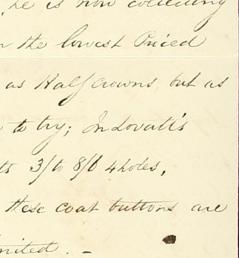 , he is now collecting
the lowest Priced
as Half crowns, but as
to try; Indovatt's
3/ to 8/6 4 holes,
these coat buttons are
nited. -